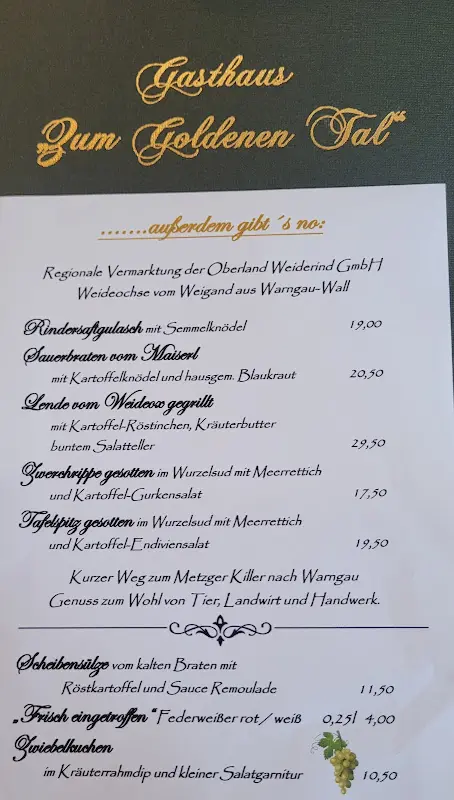 Gasthaus
„Zum Goldenen Tal“
.......außerdem gibt ´s no:
Regionale Vermarktung der Oberland Weiderind GmbH
Weideochse vom Weigand aus Warngau-Wall
Rindersaftgulasch mit Semmelknödel 19,00
Sauerbraten vom Maiserl
mit Kartoffelknödel und hausgem. Blaukraut 20,50
Lende vom Weideox gegrillt
mit Kartoffel-Röstinchen, Kräuterbutter
buntem Salatteller 29,50
Zwerchrippe gesotten im Wurzelsud mit Meerrettich
und Kartoffel-Gurkensalat 17,50
Tafelspitz gesotten im Wurzelsud mit Meerrettich
und Kartoffel-Endiviensalat 19,50
Kurzer Weg zum Metzger Killer nach Warngau
Genuss zum Wohl von Tier, Landwirt und Handwerk.
Scheibensülze vom kalten Braten mit
Röstkartoffel und Sauce Remoulade 11,50
„Frisch eingetroffen“ Federweißer rot / weiß 0,25l 4,00
Zwiebelkuchen
im Kräuterrahmdip und kleiner Salatgarnitur 10,50